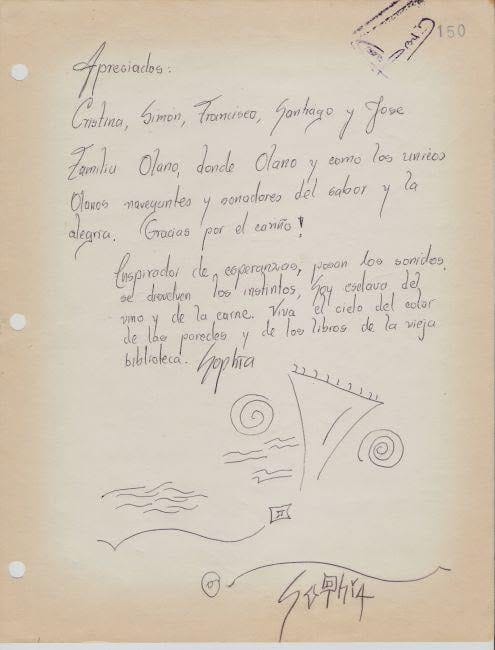 150
Apreciados:
Cristina, Simón, Francisco, Santiago y Jose
Familia Olano, donde Olano y como los unicos
Olanos navegantes y sonadores del sabor y la
alegria. Gracias por el cariño!
Inspirador de esperanzas, posan los sonidos,
se devuelven los instintos, soy esclava del
vino y de la carne. Viva el cielo del color
de las paredes y de los libros de la vieja
biblioteca. Sophia
Sophia